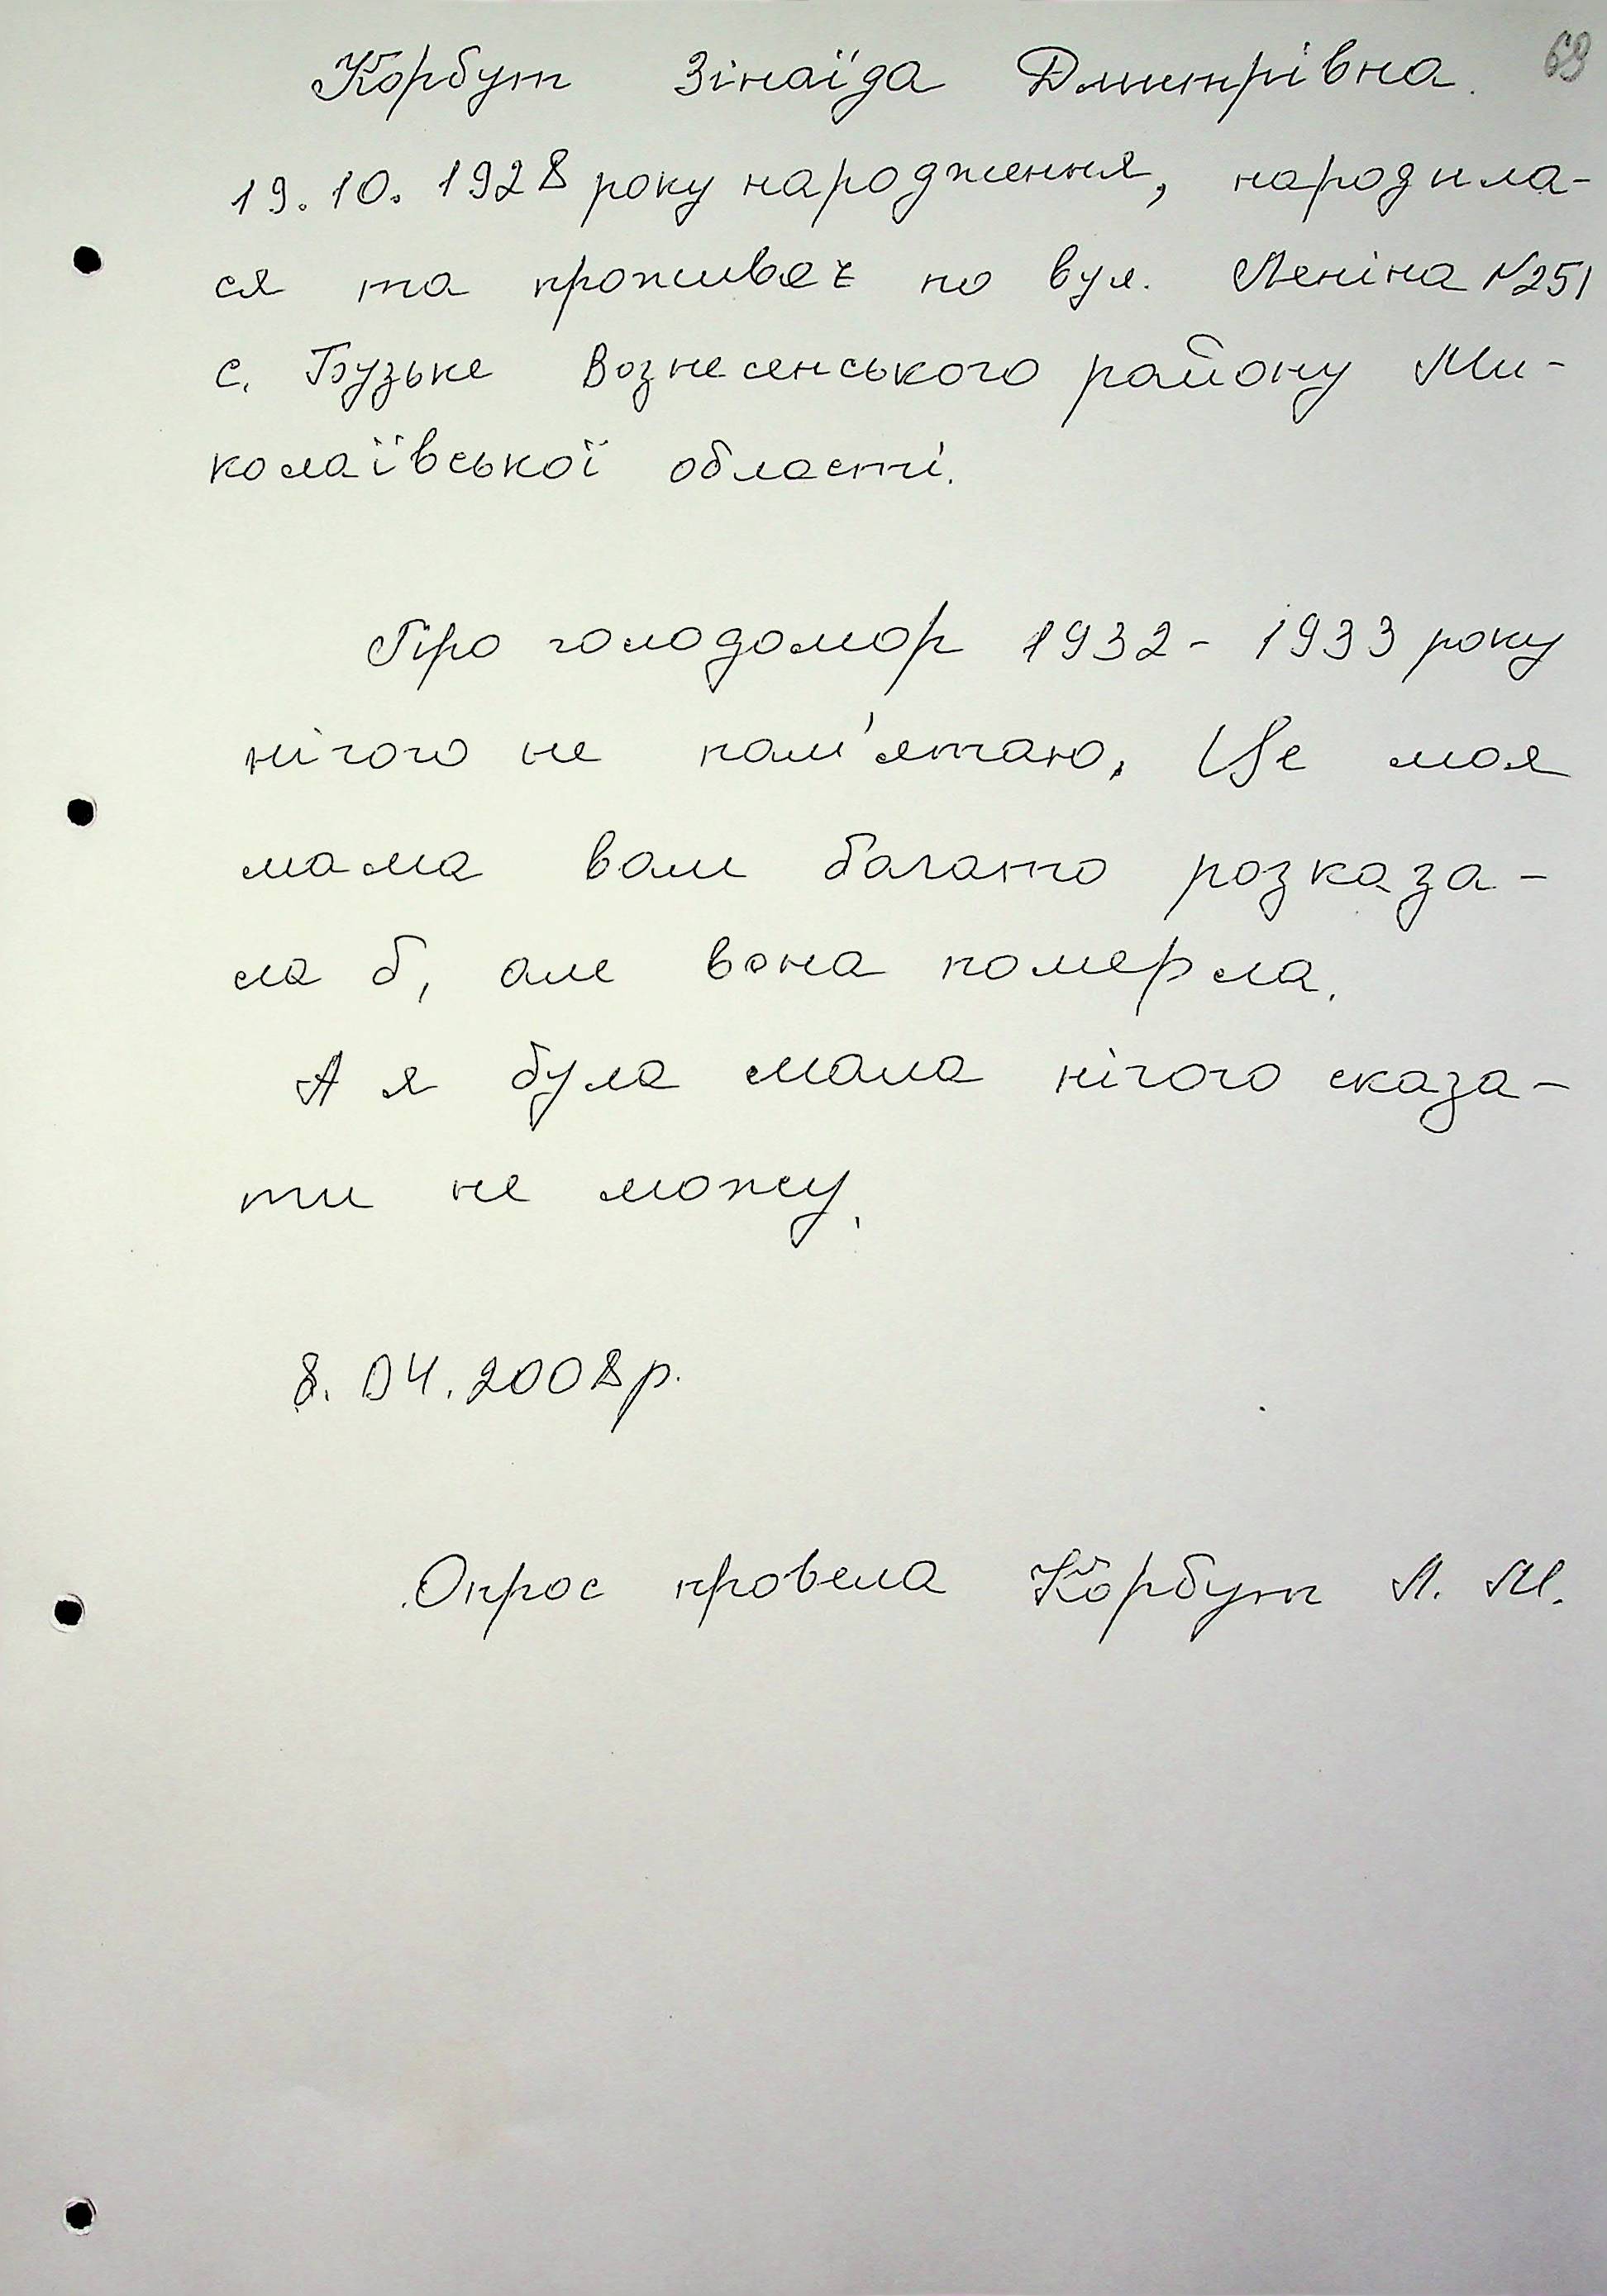 69
Корбут Зінаїда Дмитрівна.
19.10.1928 року народження, народила-
ся та проживає по вул. Леніна №251
с. Бузьке Вознесенського району Ми-
колаївської області.
Про голодомор 1932-1933 року
нічого не пам'ятаю. Це моя
мама вам багато розказа-
ла б, але вона померла.
А я була мала нічого сказа-
ти не можу.
8.04.2008р.
Опрос провела Корбут Л. М.